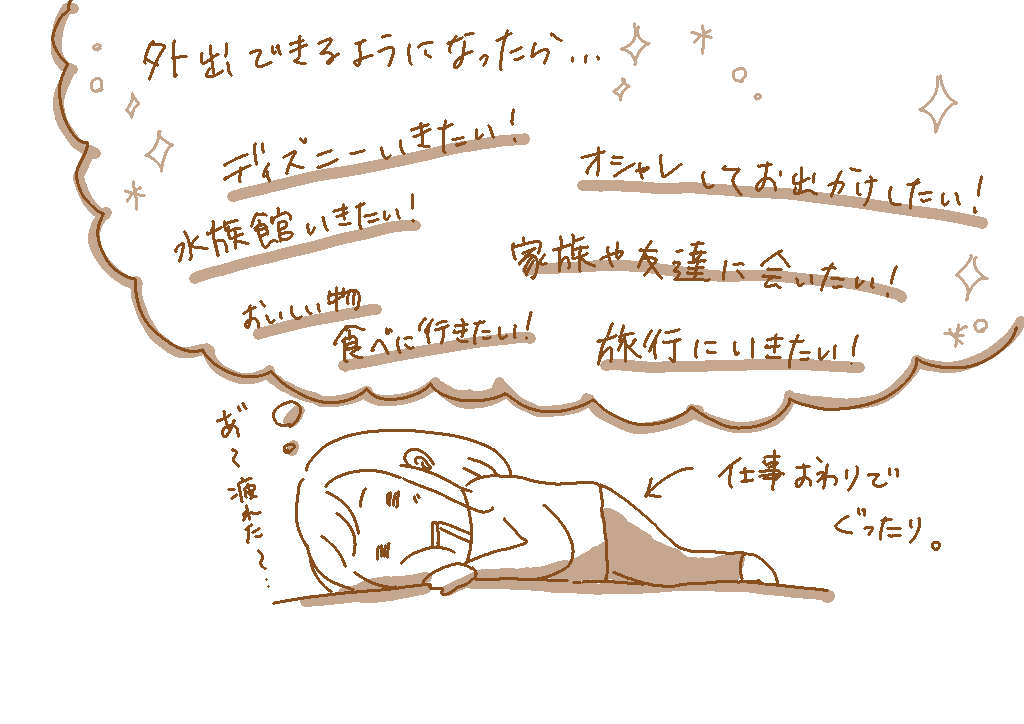 外出できるようになったら...
ディズニーいきたい!
オシャレしてお出かけしたい!
水族館いきたい!
家族や友達に会いたい!
おいしい物
食べに行きたい!
旅行にいきたい!
あ゛〜疲れた〜...
仕事おわりで
ぐったり。